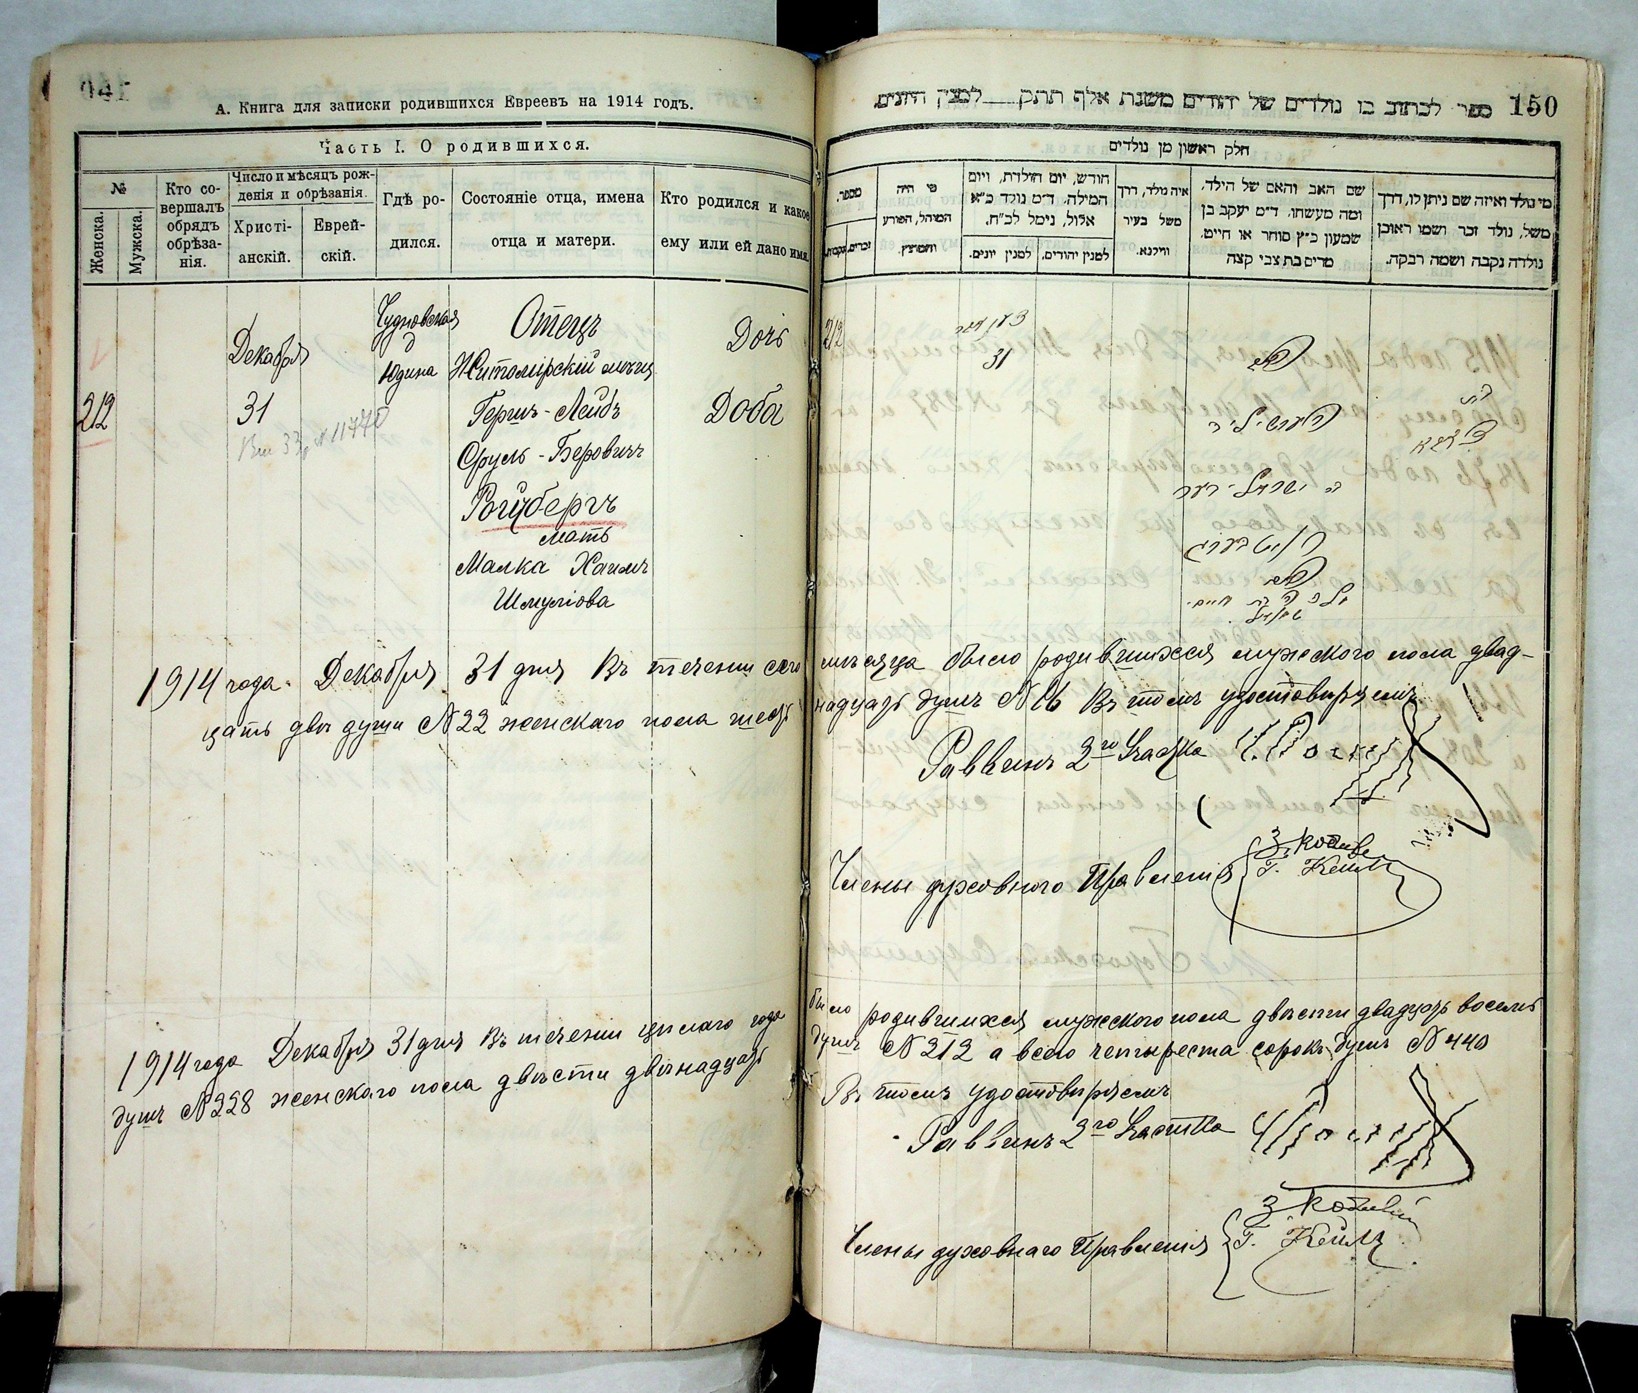 А. Книга для записки родившихся Евреевъ на 1914 годъ.
Часть I. О родившихся.
№
Женска.
Мужска.
Кто со-
вершалъ
обрядъ
обрѣза-
нія.
Число и мѣсяцъ рож-
денія и обрѣзанія.
Христі-
анскій.
Еврей-
скій.
Гдѣ ро-
дился.
Состояніе отца, имена
отца и матери.
Кто родился и какое
ему или ей дано имя.
212
Декабря
31
№ 11740
Чудновская
д
Юдина
Отецъ
Житомірскій мѣщ
Гершъ-Лейбъ
Сруль-Беровичъ
Ройтбергъ
мать
Малка Хаимъ
Шмулiова
Дочь
Доба
150
ספר לכתוב בו נולדים של יהודים משנת אלף תתק למנין היונים.
חלק ראשון מן נולדים
מספר.
זכרים.
נקבות.
מי היה
המוהל, הפורע
והמוצץ.
חודש, יום הולדת, ויום
המילה. ד״מ נולד כ״א
אלול, נימל לכ״ח.
למנין יונים.
למנין יהודים.
איה נולד, דרך
משל בעיר
ווילנא.
שם האב והאם של הילד,
ומה מעשהו. ד״מ יעקב בן
שמעון כ״ץ סוחר או חייט.
מרים בת צבי קצה
מי נולד ואיזה שם ניתן לו, דרך
משל, נולד זכר ושמו ראובן
נולדה נקבה ושמה רבקה.
212
31
1914 года. Декабря 31 дня Въ теченіи сего мѣсяца было родившихся мужского пола двад-
цать двѣ души №22 женскаго пола шест надцать душъ №16 Въ томъ удостовѣряемъ
Раввинъ 2го Участка
Члены духовного Правленія
Г. Кейль
1914 года Декабря 31 дня Въ теченіи цѣлаго года было родившихся мужского пола двѣсти двадцать восемь
душъ №228 женскаго пола двѣсти двѣнадцать душъ №212 а всего четыреста сорокъ душъ №440
Въ томъ удостовѣряемъ
Раввинъ 2го Участка
Члены духовнаго Правленія
Г. Кейль